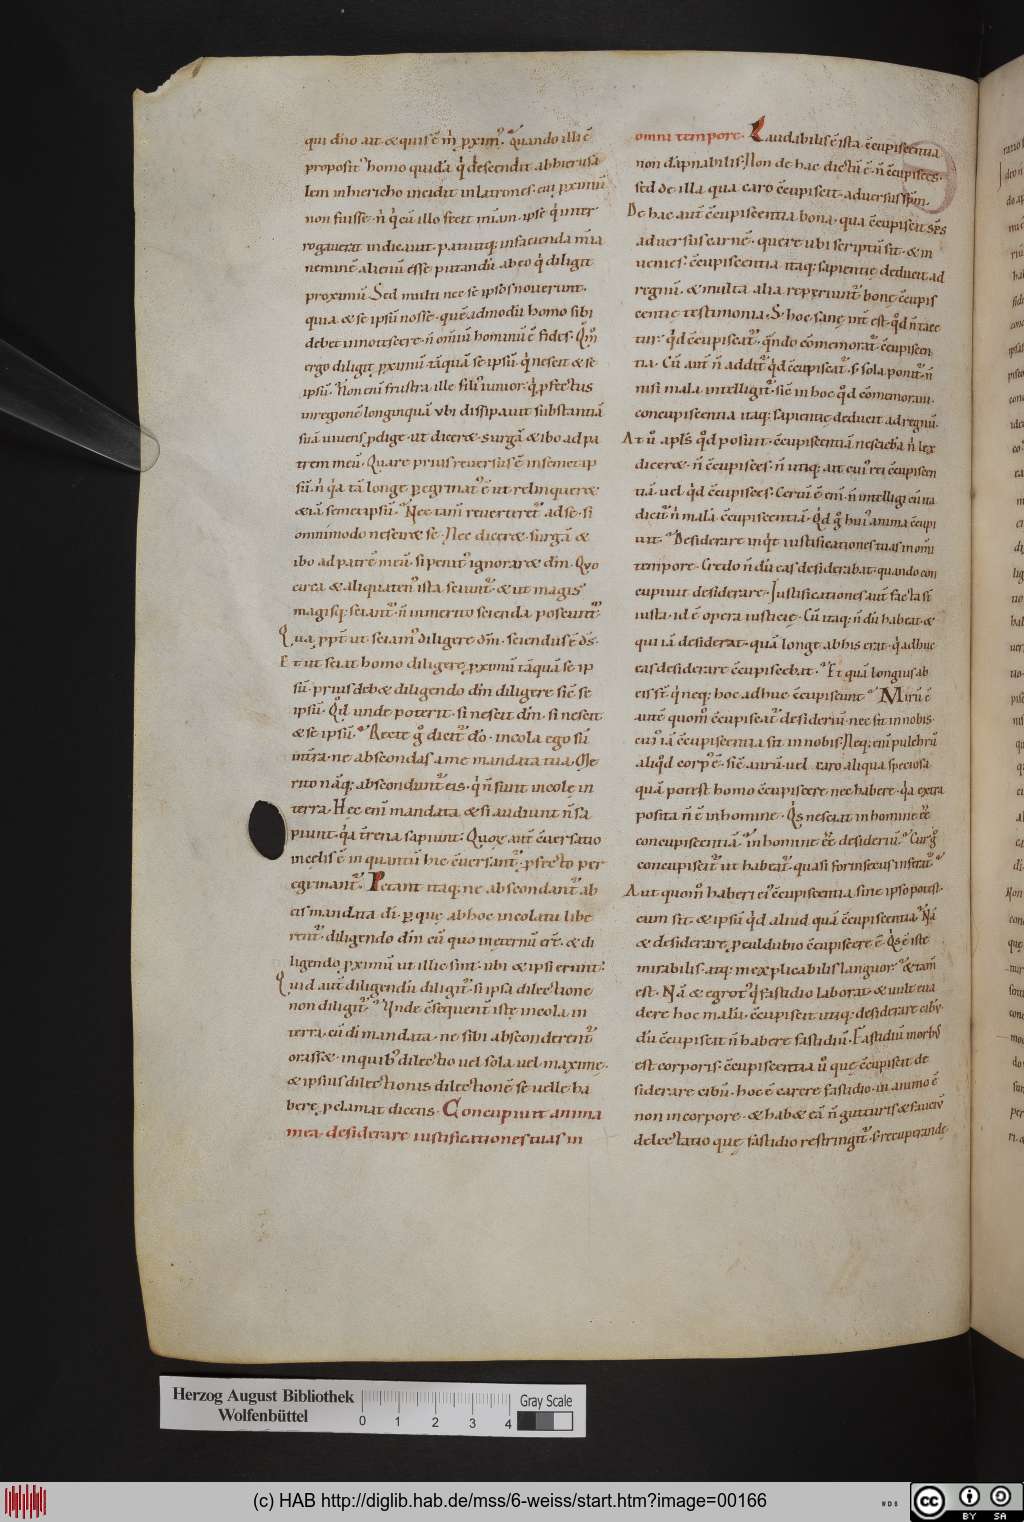 qui dn̄o ait & quis ē m̄ pxim᷒. Quando illi ē
proposit᷒ homo quidā q̇ descendit ab hierusa
lem in hiericho incidit in latrones. cui pximū
non fuisse. n̄ q̇ cū illo fecit mīam. ipse q̇ inter
rogauerat indicauit. patuitq; in facienda mīa
neminē alienū esse putandū ab eo q̇ diligit
proximū. Sed multi nec se ipsos nouerunt.
quia & se ipsū nosse. quēadmodū homo sibi
debet innotescere. n̄ omniū hominū ē fides. Qm̄
ergo diligit pximū tāquā se ipsū. q̇ nescit & se
ipsū. Non eni frustra ille fili᷒ iunior. q̇ pfectus
in regionē longinquā ubi dissipauit substantiā
suā uiuens pdige. ut diceret surgā & ibo ad pa
trem meū. Quare prius reuersus ē in semetip
sū. n̄ q̇a tā longe peregrinat᷒ ē ut relinqueret
& iā semetipsū. Nec tam̄ reuerteret᷒ ad se. si
omnimodo nesciret se. Nec diceret. surgā &
ibo ad patrē meū. si penit᷒ ignoraret dm̄. Quo
circa & aliquaten᷒ ista sciunt᷒. & ut magis
magisq; sciant᷒. n̄ inmerito scienda poscunt᷒.
Qua ppt̄ ut sciam᷒ diligere dm̄. sciendus ē ds̄.
Et ut sciat homo diligere pximū tāquā se ip
sū. prius debet diligendo dm̄ diligere sic̄ se
ipsū. Qd̄ unde poterit. si nescit dm̄. si nescit
& se ipsū. Recte ḡ dicit᷒ d̄o. incola ego sū
in t̄ra. ne abscondas a me mandata tua. Me
rito nāq; abscondunt᷒ eis. q̇ n̄ sunt incole in
terra. Hec eni mandata & si audiunt n̄ sa
piunt. q̇a t̄rena sapiunt. Quoȩ aut̄ c̄uersatio
in celis ē in quantū hic c̄uersant᷒. pfecto per
egrinant᷒. Petant itaq; ne abscondant᷒ ab
eis mandata di. p que ab hoc incolatu libe
rent᷒. diligendo dm̄ cū quo in eternū er̄t. & di
ligendo pximū ut illic sint. ubi & ipsi erunt.
Quid aut̄ diligendū diligit᷒. si ipsa dilectione
non diligit᷒. Unde c̄sequent̄ iste incola in
terra. cū di mandata. ne sibi absconderent᷒
orasset. in quib᷒ dilectio uel sola uel maxime.
& ipsius dilectionis dilectionē se uelle ha
bere pclamat dicens. Concupiuit anima
mea desiderare iustificationes tuas in
omni tempore. Laudabilis ē ista c̄cupiscentia
non dāpnabilis. Non de hac dictū ē. n̄ c̄cupisces.
sed de illa qua caro c̄cupiscit aduersus sp̄m.
De hac aut̄ c̄cupiscentia bona. qua c̄cupiscit sp̄s
aduersus carnē. quere ubi scriptū sit. & in
uenies. c̄cupiscentia itaq; sapientie deducit ad
regnū. & multa alia repperiunt᷒ bone c̄cupis
centie testimonia. S; hoc sane int̄est. qd̄ n̄ tace
tur. qd̄ c̄cupiscat᷒. qn̄do cōmemorat᷒ c̄cupiscen
tia. Cū aut̄ n̄ addit᷒ qd̄ c̄cupiscat᷒. s; sola ponit᷒. n̄
nisi mala intelligit᷒. sic̄ in hoc qd̄ cōmemoraui.
concupiscentia itaq; sapientie deducit ad regnū.
At ū apl̄s qd̄ posuit. c̄cupiscentiā nesciebā n̄ lex
diceret. n̄ c̄cupisces. n̄ utiq; ait cui᷒ rei c̄cupiscen
tiā. uel qd̄ c̄cupisces. Certū ē eni. n̄ intelligi cū ita
dicit᷒. n̄ malā c̄cupiscentiā. Qd̄ ḡ hui᷒ anima c̄cupi
uit. Desiderare inq̇t iustificationes tuas in omī
tempore. Credo n̄ dū eas desiderabat. quando con
cupiuit desiderare. Iustificationes aut̄ facta st̄
iusta. id ē opera iusticie. Cū itaq; n̄ dū habeat &
qui iā desiderat. quā longe ab his erat. q̇ adhuc
eas desiderare c̄cupiscebat. Et quā longius ab
eis st̄. q̇ neq; hoc adhuc c̄cupiscunt. Mirū ē
aut̄ quom̄ c̄cupiscat᷒ desideriū. nec sit in nobis.
cui᷒ iā c̄cupiscentia sit in nobis. Neq; eni pulchrū
aliq̇d corp᷒ ē. sic̄ aurū. uel caro aliqua speciosa
quā potest homo c̄cupiscere nec habere. q̇a extra
posita n̄ ē in homine. Q̇s nesciat in homine ee᷒
concupiscentiā. in homine ee᷒ desideriū. Cur ḡ
concupiscit᷒ ut habeat᷒. quasi forinsecus inferat᷒.
Aut quom̄ haberi ei᷒ c̄cupiscentia sine ipso potest.
cum sit. & ipsū q̇d aliud quā c̄cupiscentia. Nā
& desiderare pculdubio c̄cupiscere ē. Q̇s ē iste
mirabilis atq; inexplicabilis languor. & tam̄
est. Nā & egrot᷒ q̇ fastidio laborat & uult eua
dere hoc malū. c̄cupiscit utiq; desiderare cibū.
dū c̄cupiscit n̄ habere fastidiū. Fastidiū morb᷒
est corporis. c̄cupiscentia ū que c̄cupiscit de
siderare cibū. hoc ē carere fastidio. in animo ē
non in corpore. & habet eā n̄ gutturis & fauciū
delectatio que fastidio restringit᷒. s; recuperande
Herzog August Bibliothek
Wolfenbüttel
0 1 2 3 4
Gray Scale
(c) HAB http://diglib.hab.de/mss/6-weiss/start.htm?image=00166
WDB
cc BY SA